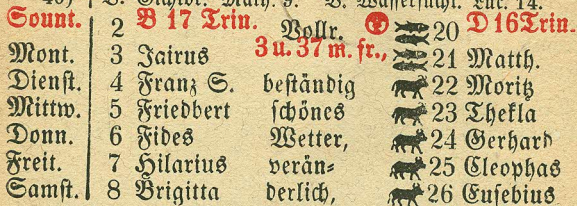 Sount. 2 B 17 Trin. Vollr. 20 D 16 Trin.
3 u. 37 m. fr.,
Mont. 3 Jairus 21 Matth.
Dienst. 4 Franz S. beständig 22 Moritz
Mittw. 5 Friedbert schönes 23 Thekla
Donn. 6 Fides Wetter, 24 Gerhard
Freit. 7 Hilarius verän- 25 Cleophas
Samst. 8 Brigitta derlich, 26 Eusebius